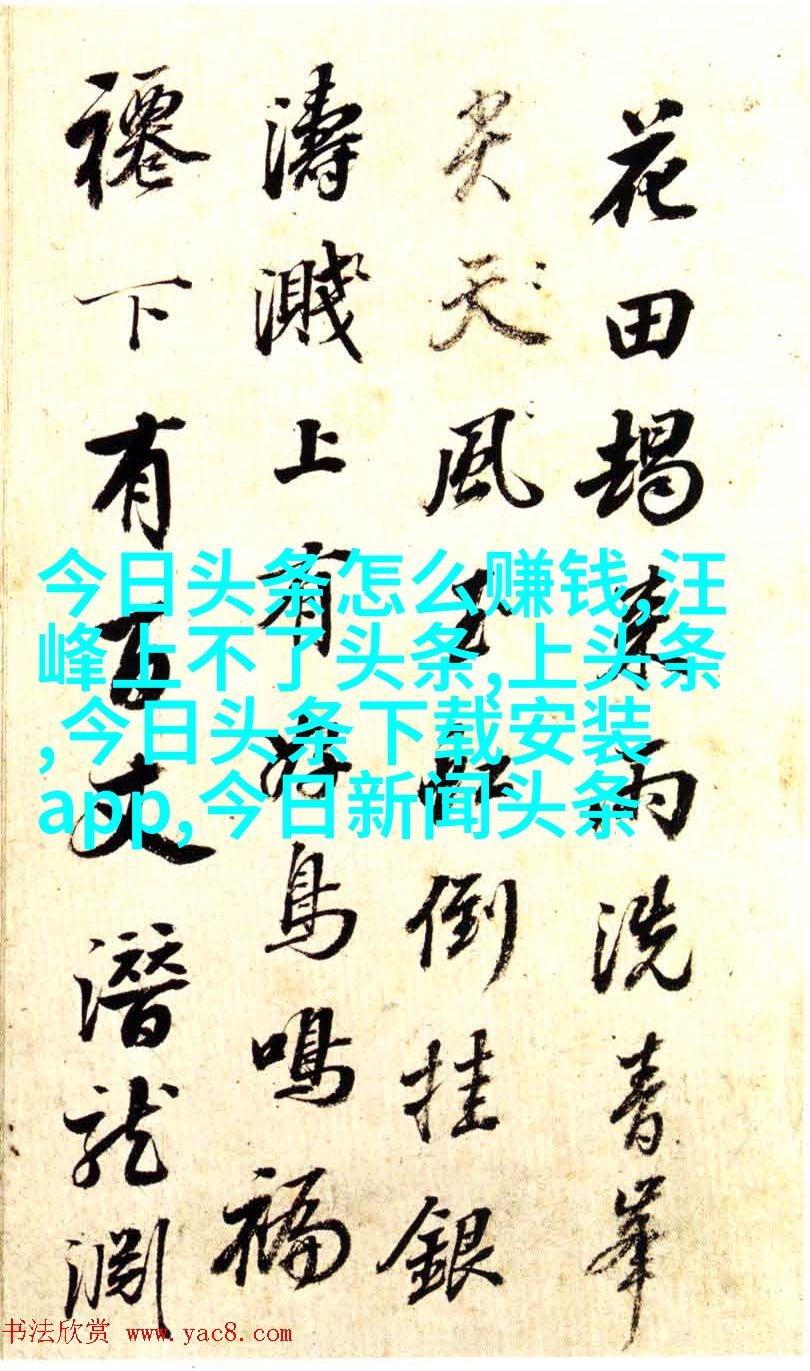 花田朅来雨洗青峯
尖天風倒挂銀
濤濺上有好鳥鳴福
下有百丈潛龍淵
今日头条怎么赚钱,汪
峰上不了头条,上头条
,今日头条下载安装
app,今日新闻头条
书法欣赏 www.yac8.com